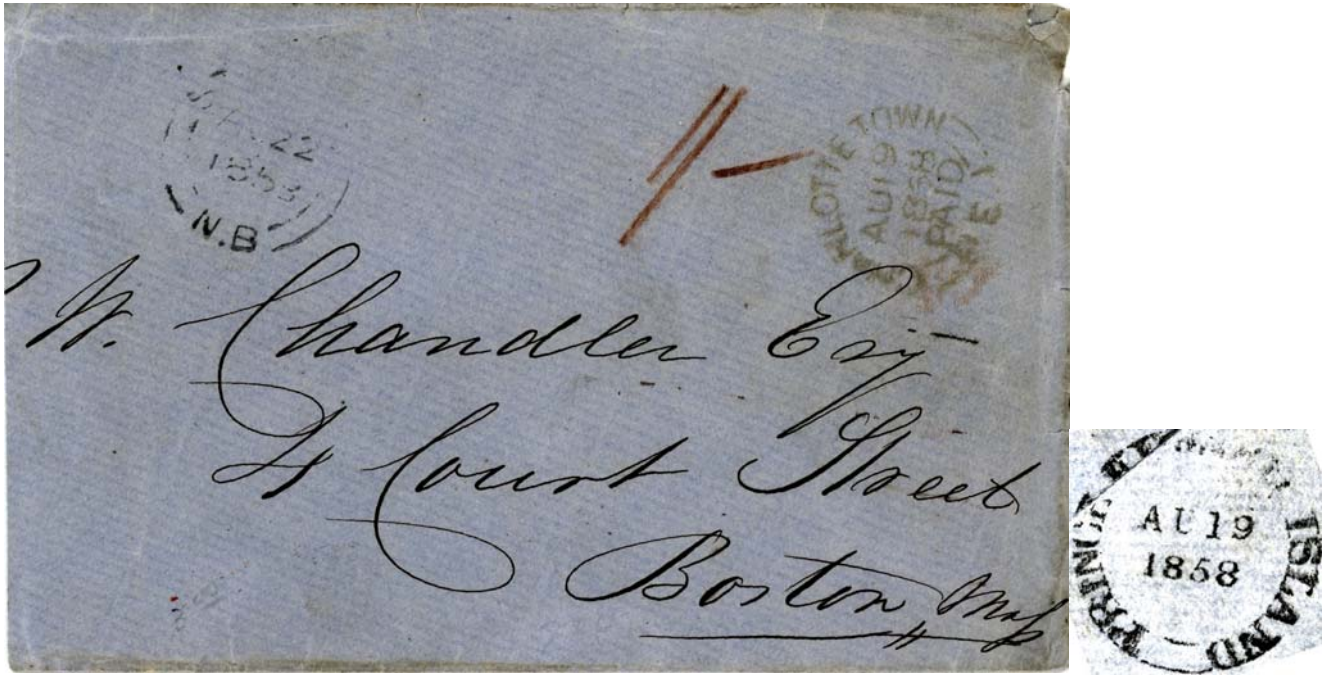 22
1858
N.B
1/-
CHARLOTTETOWN
AU 19
1858
PAID
P.E.I
W. Chandler Esq
4 Court Street
Boston Mass
PRINCE EDWARD ISLAND
AU 19
1858